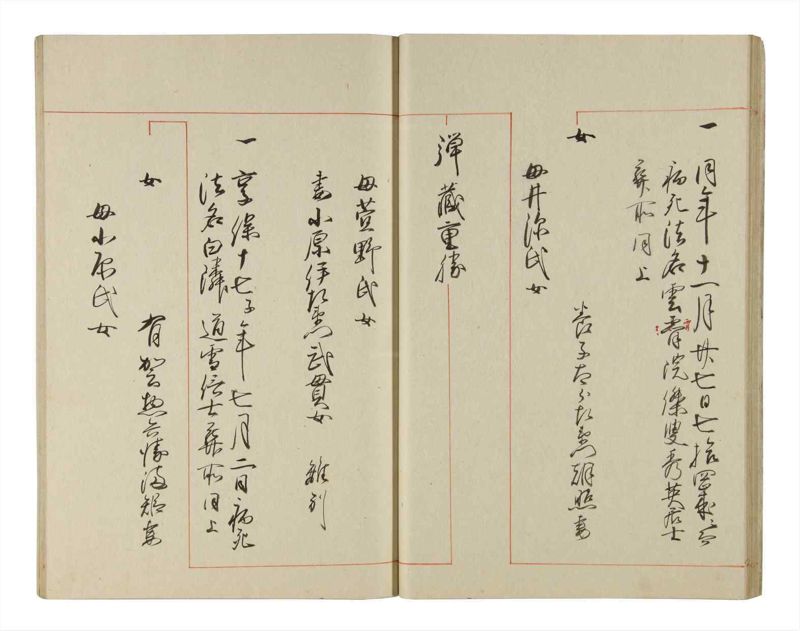 一 同年十一月廿七日七拾四歳ニ而
病死法名雲霄院傑叟秀英居士
葬所同上
女
母井深氏女
養子太郎左衛門胡照妻
弾蔵重勝
母萱野氏女
妻小原伊左衛門武貫女 離別
一 享保十七子年七月二日病死
法名白隣道雪信士葬所同上
女
有賀惣兵衛満矩妻
母小原氏女